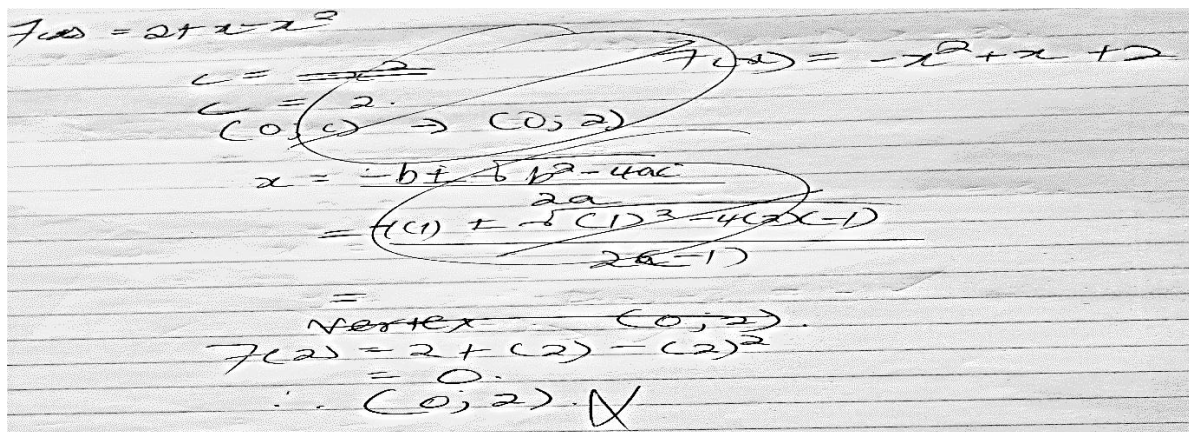 f(x) = 2 + x - x²
f(x) = -x² + x + 2
c = x²
c = 2.
(0; c) → (0; 2)
x = -b ± √b² - 4ac
2a
= -(1) ± √(1)² - 4(2)(-1)
2(-1)
=
vertex (0; 2).
f(2) = 2 + (2) - (2)²
= 0.
∴ (0; 2).